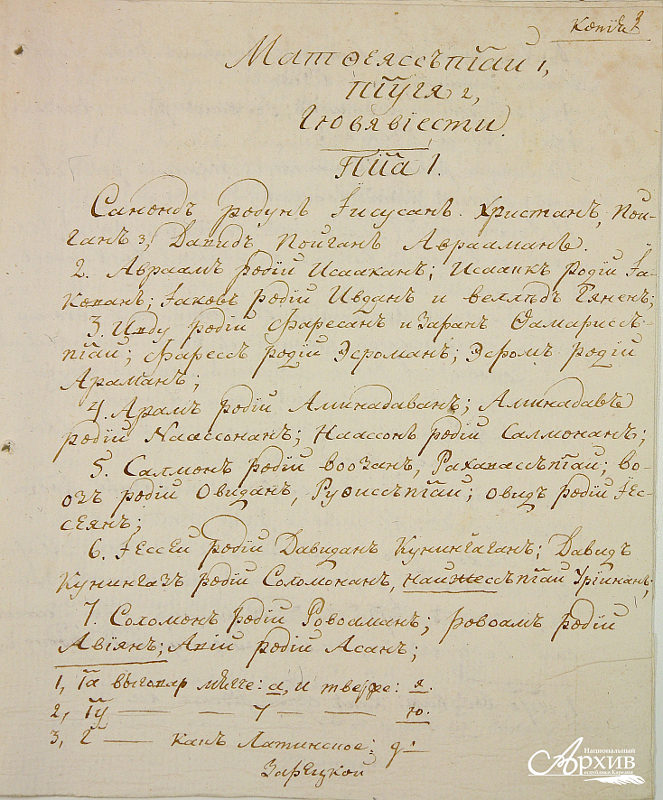 Копiя 2
Матѳеяссъпiӓи 1,
пiӱгя 2,
Гювявiести.
Пiӓ 1.
Санондъ родунъ Iисусанъ Христанъ, Пой-
ганъ 3, Давидъ Пойганъ Аврааманъ.
2. Авраамъ родiй Исааканъ; Исаакъ родiй Iа-
кованъ; Iаковъ родiй Иѵданъ и веллядъ Гяненъ;
3. Иѵду родiй Фаресанъ и Заранъ Ѳамарисс-
пiӓи; Фаресъ родiй Эсроманъ; Эсромъ родiй
Араманъ;
4. Арамъ родiй Аминадаванъ; Аминадавъ
родiй Наассонанъ; Наассонъ родiй Салмонанъ;
5. Салмонъ родiй Воозанъ, Рахавассъпiӓи; Во-
озъ родiй Овиданъ, Руѳиссъпiӓи; Овидъ родiй Iес-
сеянъ;
6. Iессей родiй Давиданъ Кунингаганъ; Давидъ
Кунингазъ родiй Соломонанъ, найжессъпiӓи Урiинанъ;
7. Соломонъ родiй Ровоаманъ; Ровоамъ родiй
Авiянъ; Авiй родiй Асанъ;
1, iӓ выговар мягче: а, и тверже: я.
2, iӱ — — у — — ю.
3, г̈ — какъ Латинское: g.
Зарецкой
Национальный
Архив
Республики Карелия